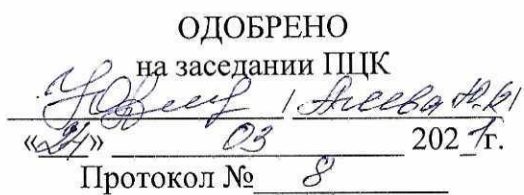 ОДОБРЕНО
на заседании ПЦК
/
«24» 03 2021г.
Протокол № 8